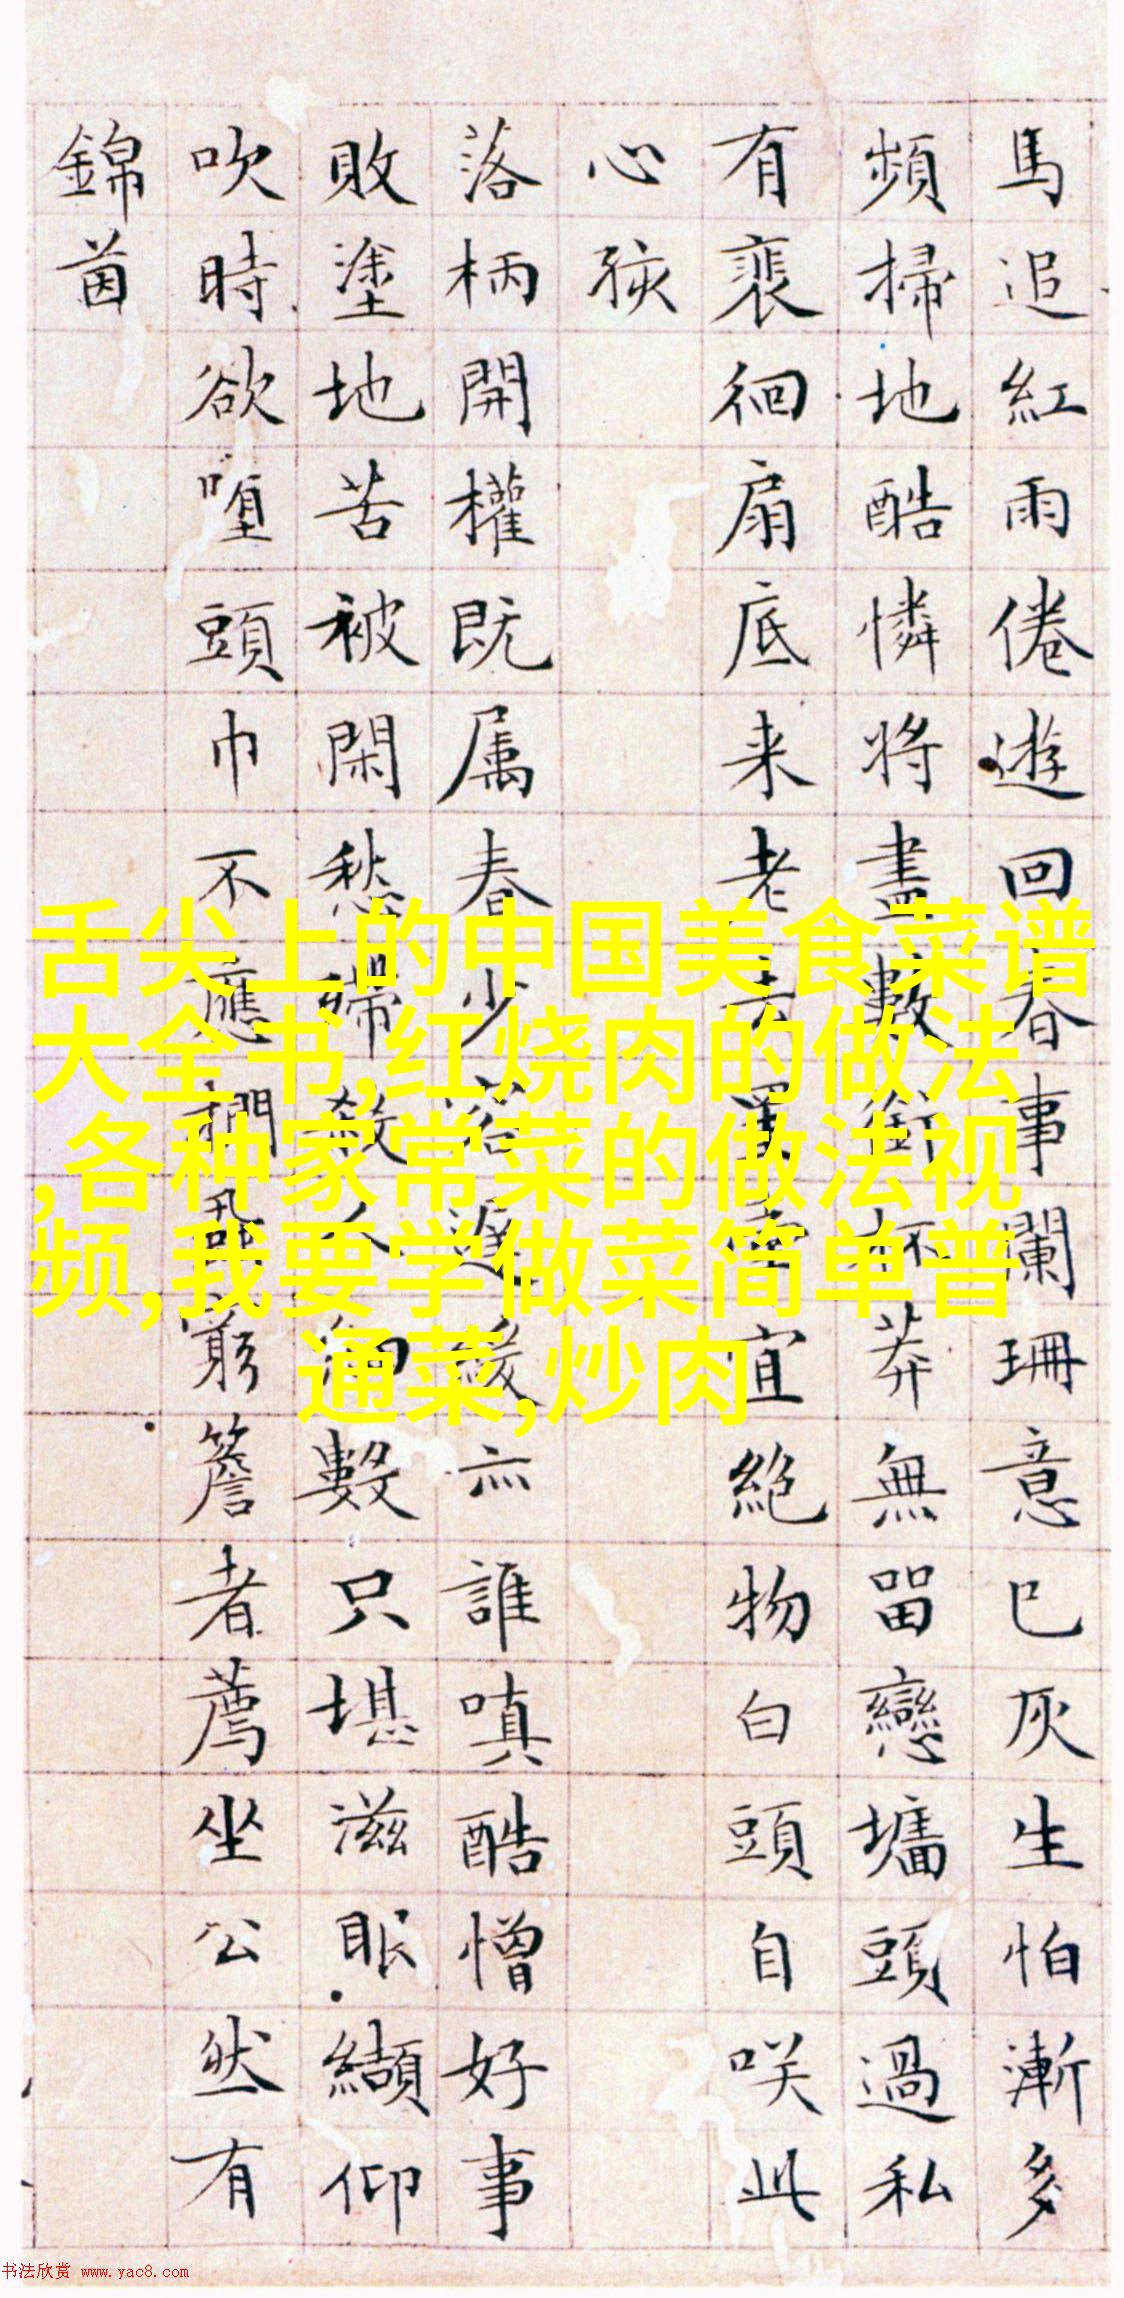 馬追紅雨倦遊回春事闌珊意已灰生怕漸多
頻掃地酷憐將盡數銜杯莽無留戀墻頭過私
有裵徊扇底来老去宜絶物白頭自咲此
心孩
落柄開權既属春少容遲緩亦誰嗔酷憎好事
敗塗地苦被閑愁人細數只堪滋眼纈仰
吹時欲頭巾不應蝨窮簷者薦坐公然有
錦茵
舌尖上的中国美食菜谱
大全书,红烧肉的做法
,各种家常菜的做法视
频,我要学做菜简单普
通菜,炒肉
书法欣赏 www.yac8.com